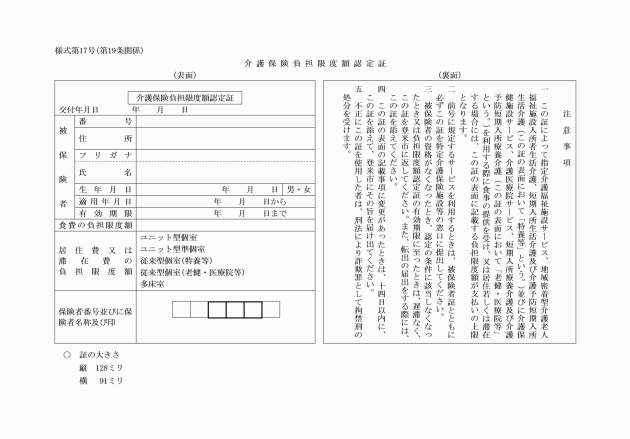 様式第17号(第19条関係)
介護保険負担限度額認定証
(表面)
介護保険負担限度額認定証
交付年月日 年 月 日
被保険者
番号
住所
フリガナ
氏名
生年月日 年 月 日 男・女
適用年月日 年 月 日から
有効期限 年 月 日まで
食費の負担限度額
居住費又は
滞在費の
負担限度額
ユニット型個室
ユニット型準個室
従来型個室(特養等)
従来型個室(老健・医療院等)
多床室
保険者番号並びに保
険者名称及び印
(裏面)
注意事項
一 この証によって指定介護福祉施設サービス、地域密着型介護老人
福祉施設入所者生活介護、短期入所生活介護及び介護予防短期入所
生活介護(この証の表面において「特養等」という。)並びに介護保
健施設サービス、介護医療院サービス、短期入所療養介護及び介護
予防短期入所療養介護(この証の表面において「老健・医療院等」
という。)を利用する際に食事の提供を受け、又は居住若しくは滞在
する場合には、この証の表面に記載する負担限度額が支払いの上限
となります。
二 前号に規定するサービスを利用するときは、被保険者証とともに
必ずこの証を特定介護保険施設等の窓口に提出してください。
三 被保険者の資格がなくなったとき、認定の条件に該当しなくなっ
たとき又は負担限度額認定証の有効期限に至ったときは、遅滞なく、
この証を登米市に返してください。また、転出の届出をする際には、
この証を添えてください。
四 この証の表面の記載事項に変更があったときは、十四日以内に、
この証を添えて、登米市にその旨を届け出てください。
五 不正にこの証を使用した者は、刑法により詐欺罪として拘禁刑の
処分を受けます。
○ 証の大きさ
縦 128ミリ
横 91ミリ